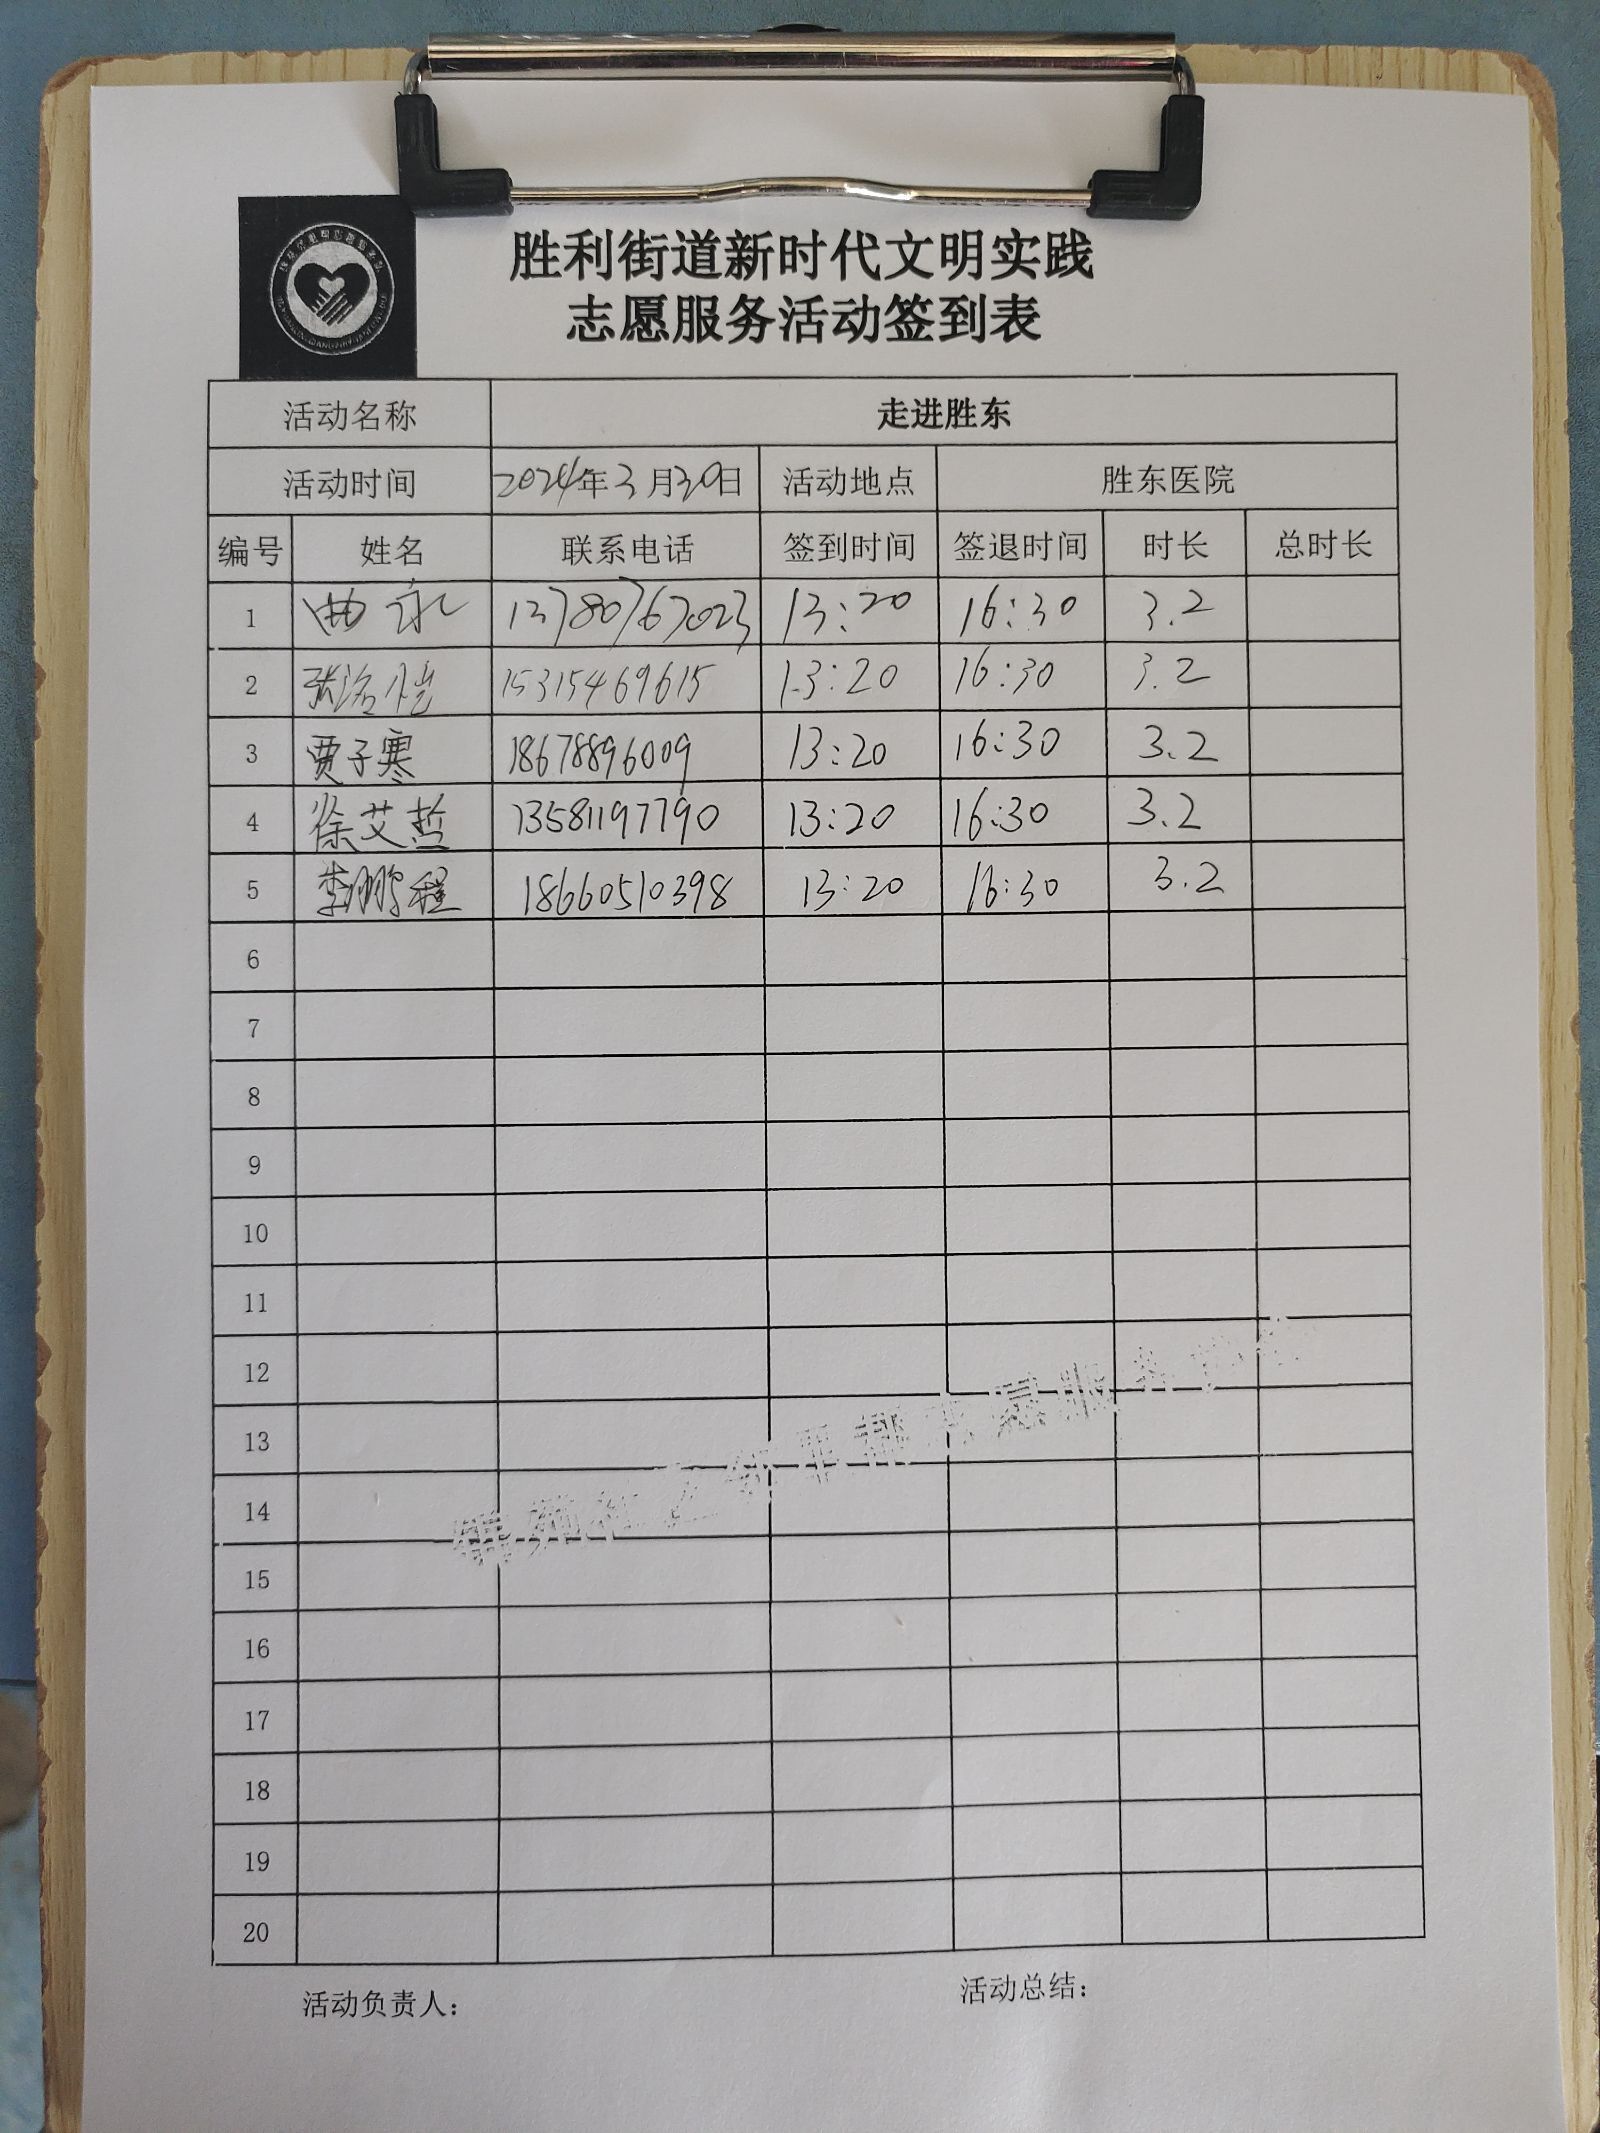 胜利街道新时代文明实践
志愿服务活动签到表
活动名称 走进胜东
活动时间 2024年3月30日 活动地点 胜东医院
编号 姓名 联系电话 签到时间 签退时间 时长 总时长
1 曲永 13780767023 13:20 16:30 3.2
2 张洺恺 15315469615 13:20 16:30 3.2
3 贾子寒 18678896009 13:20 16:30 3.2
4 徐艾哲 13581197790 13:20 16:30 3.2
5 李鹏程 18660510398 13:20 16:30 3.2
6
7
8
9
10
11
12
13
14
15
16
17
18
19
20
活动负责人： 活动总结：